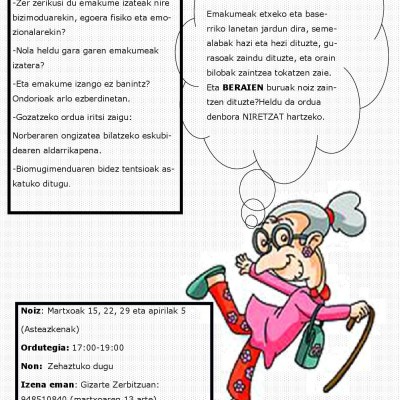 -Zer zerikusi du emakume izateak nire
bizimoduarekin, egoera fisiko eta emo-
zionalarekin?
-Nola heldu gara garen emakumeak
izatera?
-Eta emakume izango ez banintz?
Ondorioak arlo ezberdinetan.
-Gozatzeko ordua iritsi zaigu:
Norberaren ongizatea bilatzeko eskubi-
dearen aldarrikapena.
-Biomugimenduaren bidez tentsioak as-
katuko ditugu.
Emakumeak etxeko eta base-
rriko lanetan jardun dira, seme-
alabak hazi eta hezi dituzte, gu-
rasoak zaindu dituzte, eta orain
bilobak zaintzea tokatzen zaie.
Eta BERAIEN buruak noiz zain-
tzen dituzte?Heldu da ordua
denbora NIRETZAT hartzeko.
Noiz: Martxoak 15, 22, 29 eta apirilak 5
(Asteazkenak)
Ordutegia: 17:00-19:00
Non: Zehaztuko dugu
Izena eman: Gizarte Zerbitzuan:
948510840 (martxoaren 13 arte)